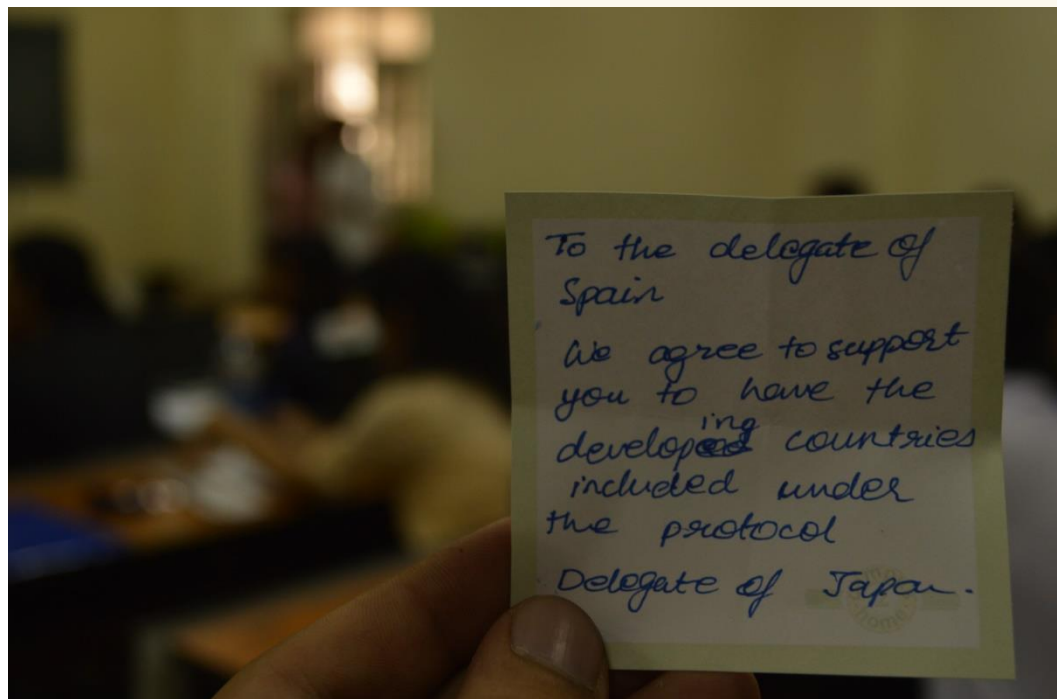 To the delegate of
Spain
We agree to support
you to have the
developing countries
included under
the protocol
Delegate of Japan.